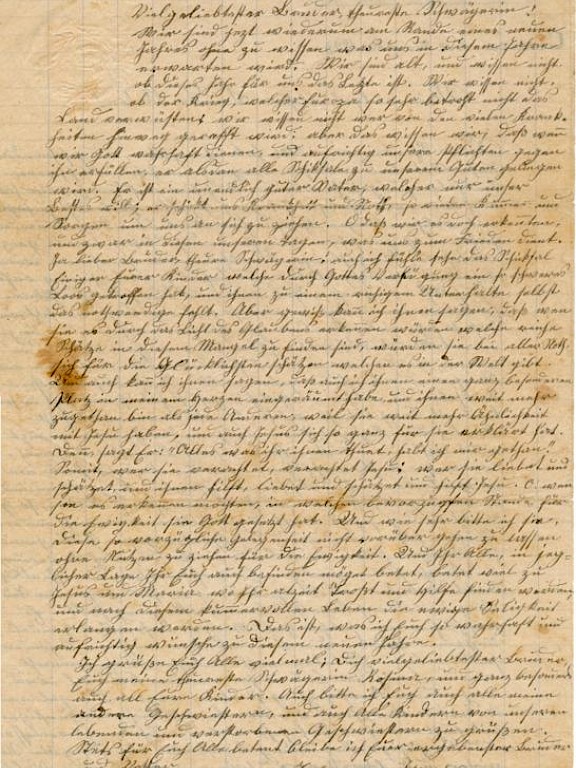 Vielgeliebtester Bruder, theuerste Schwägerin!
Wir sind jezt wiederum am Rande eines neuen
Jahres ohne zu wissen was uns in diesem Jahre
erwarten wird. Wir sind alt, und wissen nicht
ob dieses Jahr für uns das Letzte ist. Wir wissen nicht,
ob der Krieg, welcher so sehr betroht nicht das
Land verwüstens; wir wissen nicht wer von den vielen Krank-
heiten hinweg gerafft wird; aber das wissen wir, daß wenn
wir Gott wahrhaft dienen, und aufrichtig unsere Pflichten gegen
ihn erfüllen, er alsdan alle Schiksale zu unserem Guten gelegen
wird. Er ist ein unendlich guter Vater, welcher nur unser
Bestes will; er schikt uns Krankheit und Noth, so viele Kummer und
Sorgen um uns an sich zu ziehen. O daß wir es doch erkenten,
und zwar in diesen unseren Tagen, was uns zum Frieden dient.
Ja lieber Bruder, theure Schwägerin, auch ich fühle sehr das Schiksal
Einiger Eurer Kinder welche durch Gottes Verfügung ein so schweres
Loos getroffen hat, und ihnen zu einem ruhigem Unterhalte selbst
das nothwendige fehlt. Aber gewiß kan ich ihnen sagen, daß wen
sie es durch das Licht des Glaubens erkenen würden welche reiche
Schätze in diesem Mangel zu finden sind, würden sie bei aller Noth
sich für die Glücklichsten schätzen welchen es in der Welt gibt.
Den auch kan ich ihnen sagen, daß auch ich ihnen einen ganz besonderen
Platz in meinem Herzen eingeräumt habe und ihnen weit mehr
zugethan bin als jene Anderen, weil sie weit mehr Ähnlichkeit
mit Jesu haben, und auch Jesus sich so ganz für sie erklärt hat.
Den, sagt Er: "Alles was ihr ihnen thuet, habt ihr mir gethan."
Somit, wer sie verachtet, verachtet Jesu; wer sie liebet und
schätzet, und ihnen hilft, liebet und schätzet und hilft Jesu. O wen
sie es erkenen möchten, in welchen bevorzugten Stande für
die Ewigkeit sie Gott gesetzt hat. Und wie sehr bitte ich sie,
diese so vorzügliche Gelegenheit nicht vorüber gehen zu lassen
ohne Nutzen zu ziehen für die Ewigkeit. Und Ihr Alle, in jeg-
licher Lage Ihr Euch auch befinden möget betet, betet viel zu
Jesus und Maria wo Ihr alzeit Trost und Hilfe finden werdet,
und nach diesem kummervollen Leben die ewige Seligkeit
erlangen werden. Das ist, was ich Euch so wahrhaft und
aufrichtig wünsche zu diesem neuen Jahre.
Ich grüße Euch Alle vielmal; Dich vielgeliebtester Bruder,
Euch meine theuerste Schwägerin und ganz besonders
auch all Eure Kinder. Auch bitte ich Euch auch alle meine
andere Geschwiestern, und auch Alle Kindern von unseren
lebenden und verstorbenen Geschwiestern zu grüßen.
Stets für Euch Alle betent bleibe ich Euer ergebenster Bruder